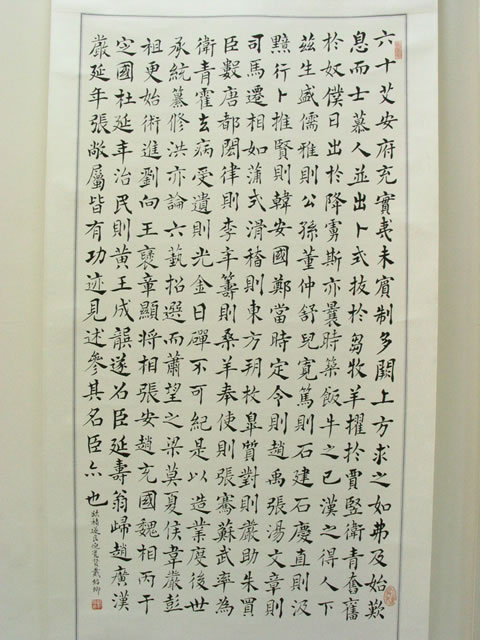 六十艾安府充實夷未賓制多闕上方求之如弗及始歎
息而士慕人並出卜式拔於芻牧羊擢於賈竪衛青奮
於奴僕日出於降虜斯亦曩時築飯牛之已漢之得人下
茲生盛儒雅則公孫董仲舒兒寬篤則石建石慶直則汲
黯行卜推賢則韓安國鄭當時定令則趙禹張湯文章則
司馬遷相如蒲式滑稽則東方朔枚皋質對則嚴助朱買
臣數唐都閎律則李年籌則桑羊奉使則張騫蘇武率為
衛青霍去病受遺則光金日磾不可紀是以造業度後世
承統纂修洪亦論六藝招選而蕭望之梁莫夏侯韋嚴彭
祖更始術進劉向王襃章顯將相張安趙充國魏相丙于
定國杜延年治民則黃王成龔遂召臣延壽翁歸趙廣漢
嚴延年張敞屬皆有功迹見述參其名臣亦也